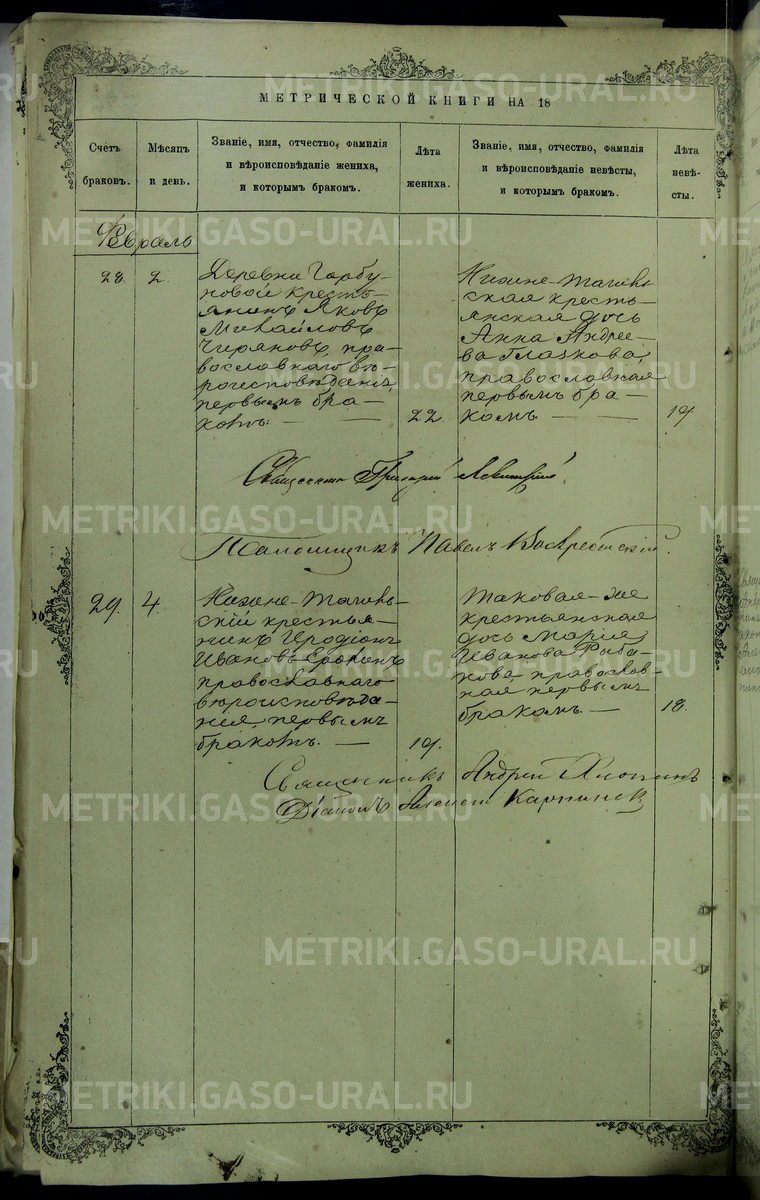 МЕТРИЧЕСКОЙ КНИГИ НА 18
Счетъ браковъ.
Мѣсяцъ и день.
Званіе, имя, отчество, фамилія
и вѣроисповѣданіе жениха,
и которымъ бракомъ.
Лѣта жениха.
Званіе, имя, отчество, фамилія
и вѣроисповѣданіе невѣсты,
и которымъ бракомъ.
Лѣта невѣ-
сты.
Февраль
28.
2.
Деревни Гарбу-
новой кресть-
янинъ Яковъ
Михайловъ
пра-
вославнаго вѣ-
роисповѣданія,
первымъ бра-
комъ. —
22.
Нижне-Тагиль-
ская кресть-
янская дочь
Анна Андрее-
ва Глазкова,
православная
первымъ бра-
комъ — —
19.
Священникъ Григорій Левитскій.
Псаломщикъ Павелъ Воскресенскій.
29.
4.
Нижне-Тагиль-
скій крестья-
нинъ Иродіонъ
Ивановъ
православнаго
вѣроисповѣда-
нія, первымъ
бракомъ. —
19.
Таковая-же
крестьянская
дочь Марія
Иванова Раба-
кова, православ-
ная первымъ
бракомъ. —
18.
Священникъ Андрей Хлопинъ
Діаконъ Алексей
METRIKI.GASO-URAL.RU